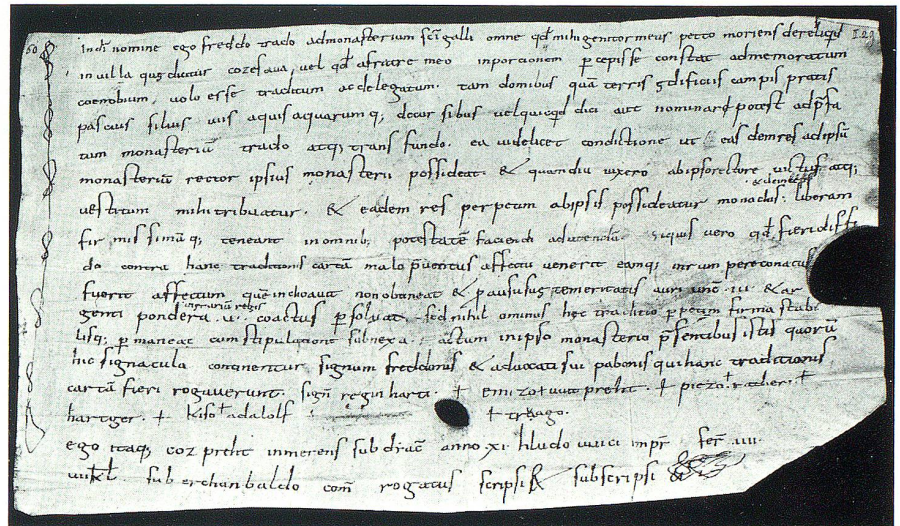 In dī nomine ego freddo trado ad monasterium scī galli omne qđ mihi genitor meus petto moriens dereliquid
in villa quę dicitur cozesaua, vel qđ a fratre meo in porcionem percepisse constat ad memoratum
coenobium, volo esse traditum ac delegatum. tam domibus quā terris ędificiis campis pratis
pascuis silvis viis aquis aquarumq; decursibus vel quicqđ dici aut nominari potest ad p̄fa
tum monasteriū trado atq; transfundo. ea videlicet condictione ut easdem res ad ipsū
monasteriū rector ipsius monasterii possideat. & quamdiu vixero ab ipso rectore victus atq;
vestitum mihi tribuatur. & eadem res perpetim ab ipsis possideatur monachis. liberam
firmissimāq; teneant in omnib; potestatē faciendi siquis vero qđ fieri
do contra hanc traditionis cartā malo p̄ventus affectu venerit eamq; inrumpere conatus
fuerit affectum quē inchoavit non obtineat & p ausu suę temeritatis auri unc̄. iii. & ar
in erarium regis
genti pondera .v. coactus p solvat. sed nihil ominus hęc traditio p petim firma stabi
lisq; p maneat cum stipulatione subnexa. actum in ipso monasterio p̄sentibus istis quorū
hic signacula continentur. signum freddonis & advocati sui pabonis qui hanc traditionis
cartā fieri rogaverunt. signū reginharti. † † piezo.
hartger. † kiso † adalolf
ego itaq; cozpreht inmerens subdiac̄ anno xi hludowici impr̄ fer̄ .iiii.
kl̄. sub erchanbaldo com̄ rogatus scripsi & subscripsi
60